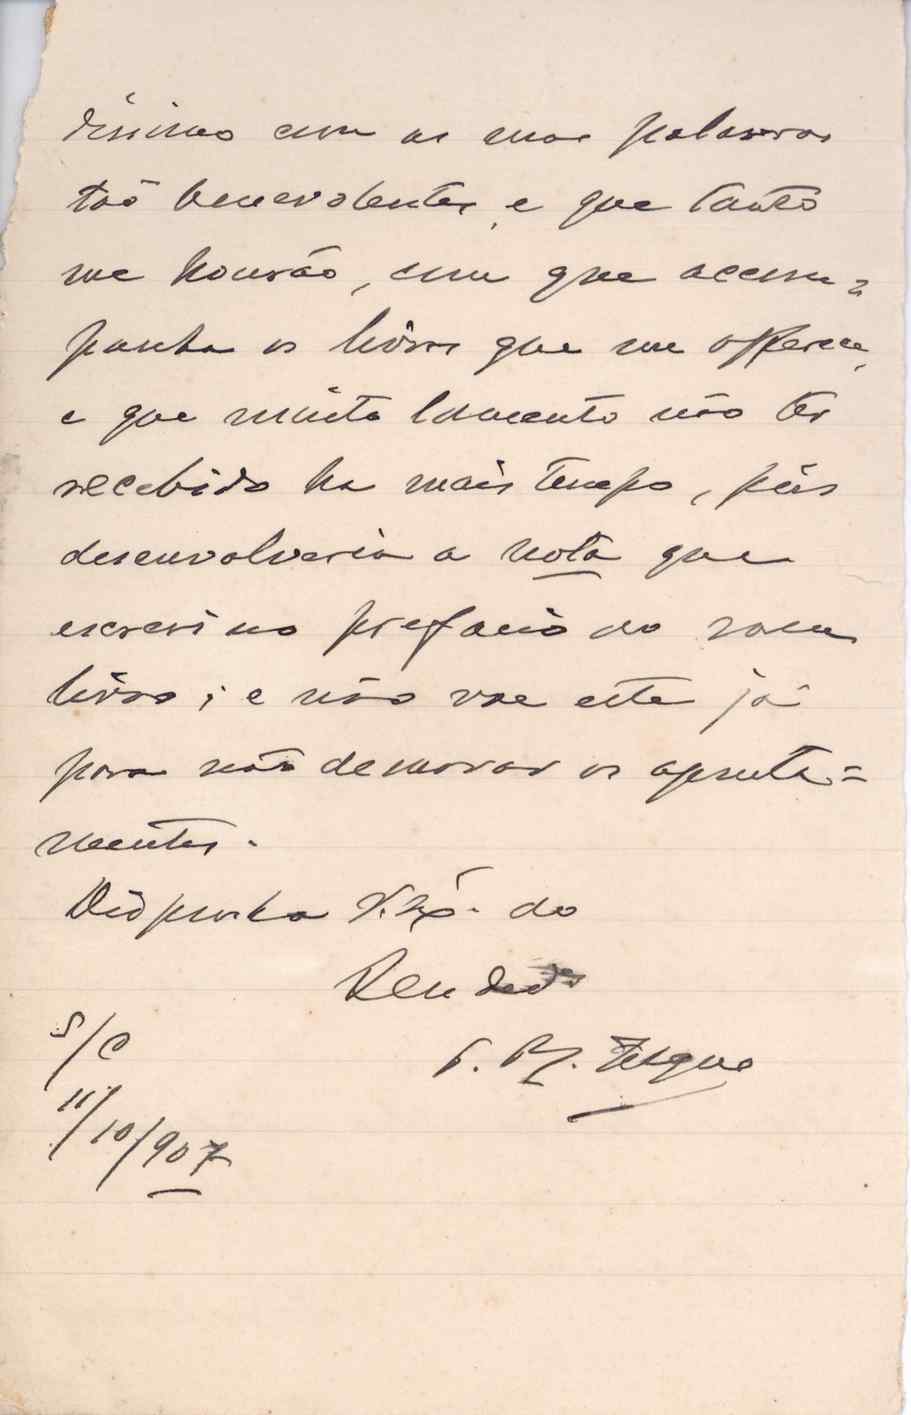 dissimo com as suas palavras
tão benevolentes, e que tanto
me honrão, com que accom=
panha os livros que me offerece,
e que muito lamento não ter
recebido ha mais tempo, pois
desenvolveria a nota que
escrevi no prefacio do
livro; e não vae este já
para não demorar os aponta=
mentos.
Disponha V. Exª. do
S/C
11/10/907